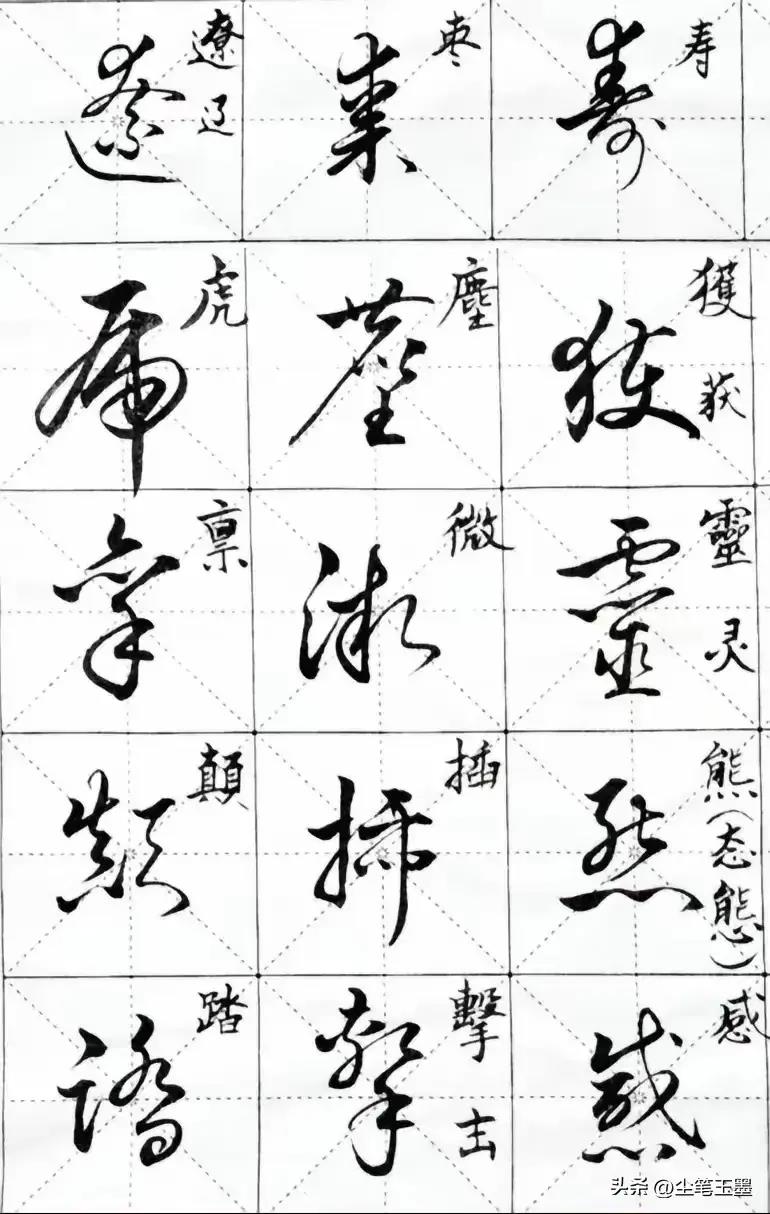 遼 遼 辽
棗 枣
壽 寿
虎 虎
塵 塵
獲 獲 获
禀 禀
微 微
靈 靈 灵
顛 顛
插 插
熊 熊(态態)
踏 踏
擊 擊 击
感 感
头条 @尘笔玉墨